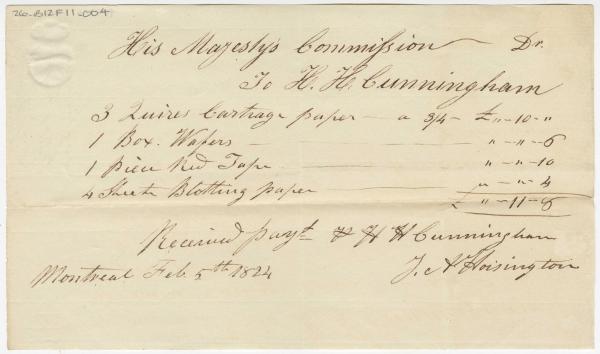 26-B12F11-004
His Majesty's Commission — Dr.
To H. H. Cunningham
3 Quires Cartrage paper — a 3/4 — £ " — 10 — "
1 Box. Wafers — " — " — 6
1 Piece Red Tape — " — " — 10
4 Sheets Blotting paper — " — " — 4
£ " — 11 — 8
Received payt H H Cunningham
Montreal Feb. 5th 1824
J. A. Hoisington